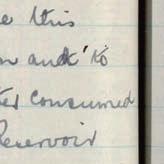 e this
n and to
ter consumed
Reservoir